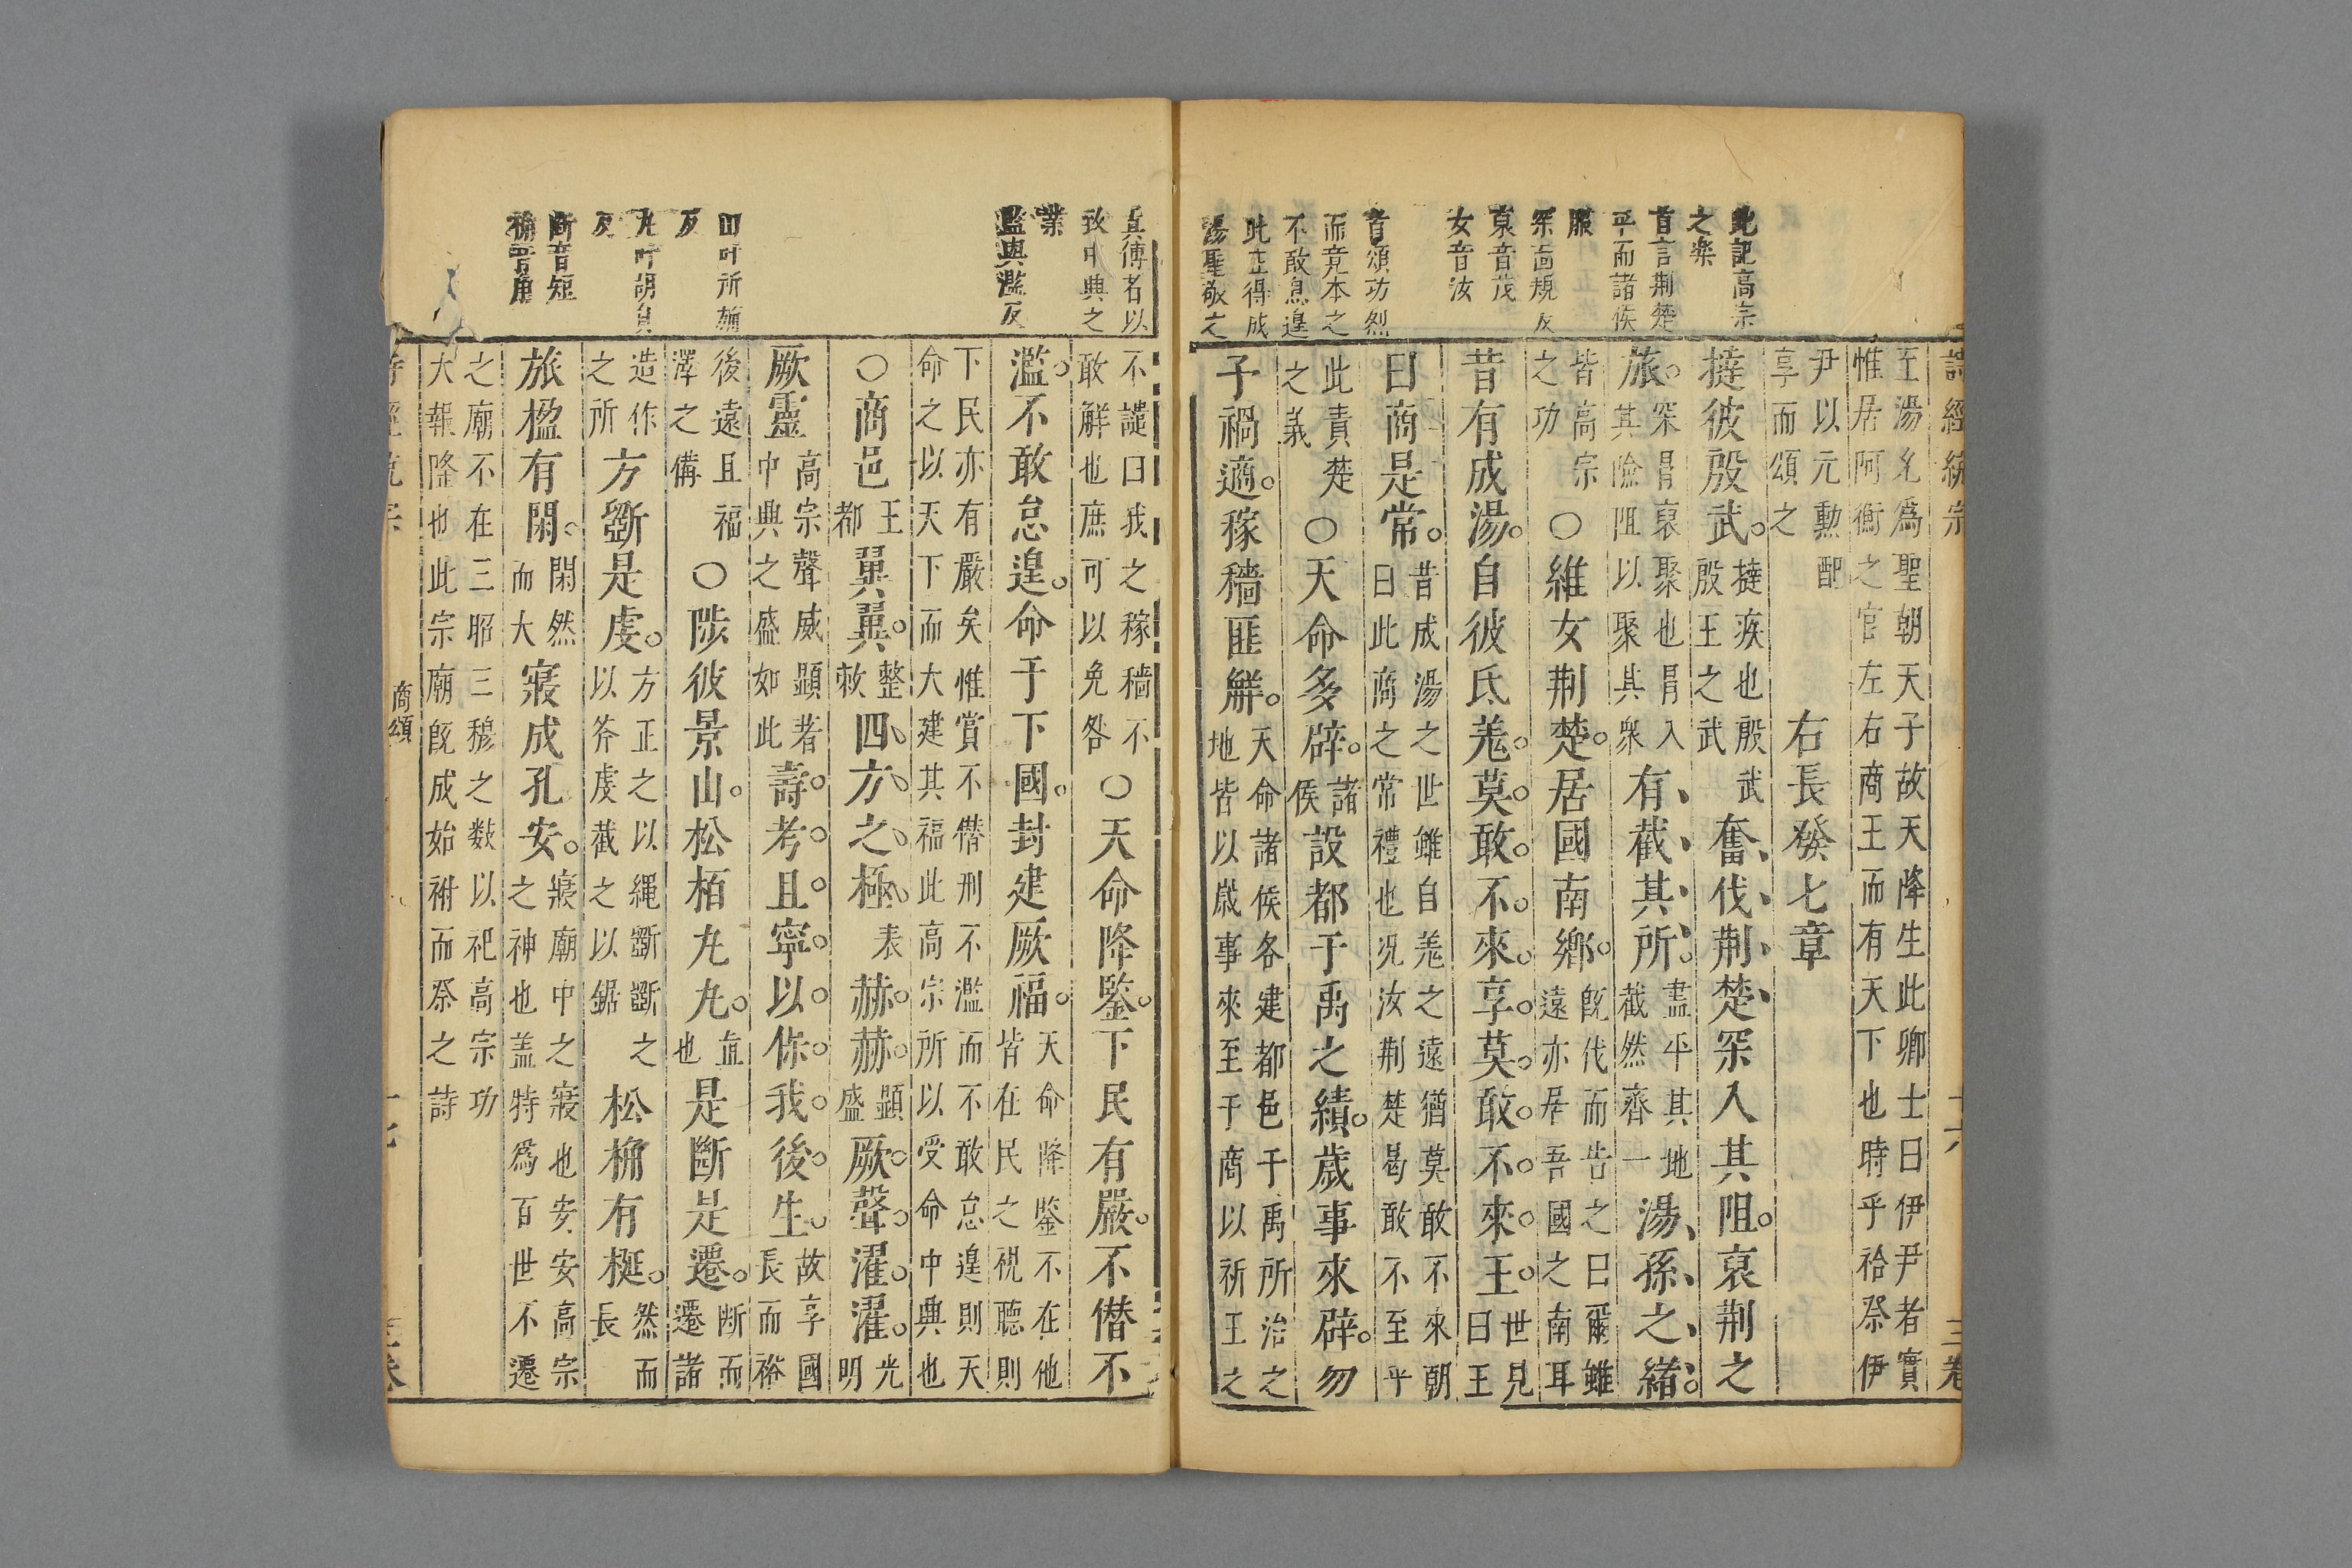 此記高宗
之樂
首言荆楚
平而諸侯
服
裒音茂
女音汝
首頌功烈
而竟本之
不敢怠遑
湯聖敬之
詩經統宗　十六　三卷
至湯允爲聖朝天子故天降生此卿士曰伊尹者實
惟居阿衡之官左右商王而有天下也時乎祫祭伊
尹以元勳配享而頌之　右長發七章
撻彼殷武。撻疾也殷武殷王之武奮伐荆楚罙入其阻。裒荆之
旅。罙冐裒聚也冐入其險阻以聚其衆有截其所。盡平其地截然齊一湯孫之緒。
皆高宗之功○維女荆楚。居國南鄉。旣伐而告之曰爾雖遠亦居吾國之南耳
昔有成湯。自彼氐羌。莫敢不來享。莫敢不來王。世見曰王
曰商是常。昔成湯之世雖自羌之遠猶莫敢不來朝曰此商之常禮也况汝荆楚曷敢不至乎
此責楚之義○天命多辟。諸侯設都于禹之績。歲事來辟。勿
子禍適。稼穡匪解。天命諸侯各建都邑于禹所治之地皆以歲事來至于商以祈王之
其傳者以
致中興之
業
監與濫反
山叶所旃
反
丸叶胡員
反
斷音短
桷音角
不譴曰我之稼穡不敢解也庶可以免咎○天命降鍳。下民有嚴。不僣不
濫。不敢怠遑。命于下國。封建厥福。天命降鍳不在他皆在民之視聽則
下民亦有嚴矣惟賞不僣刑不濫而不敢怠遑則天
命之以天下而大建其福此高宗所以受命中興也
○商邑王都翼翼。整敕四方之極。表赫赫。顯盛厥聲。濯濯。光明
厥靈高宗聲威顯著中興之盛如此壽考且寧。以保我後生。故享國長而裕
後遠且福澤之備○陟彼景山。松栢丸丸。直也是斷是遷。斷而遷諸
造作之所方斲是虔。方正之以繩斲斷之以斧虔截之以鋸松桷有梴。然而長
旅楹有閑。閑然而大寢成孔安。寢廟中之寢也安安高宗之神也盖特爲百世不遷
之廟不在三昭三穆之数以祀高宗功
大報隆也此宗廟旣成始祔而祭之詩
商頌